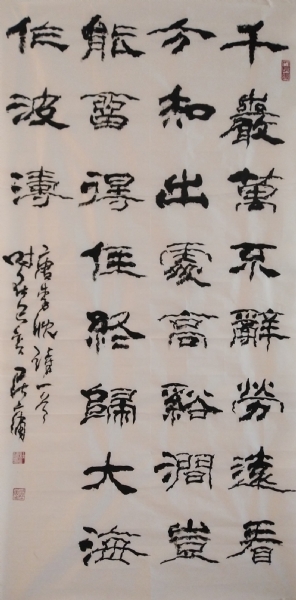 千巖萬不辭勞遠看
方知出處高谿澗豈
能畱得住終歸大海
作波濤
唐李忱詩一首
时在己亥